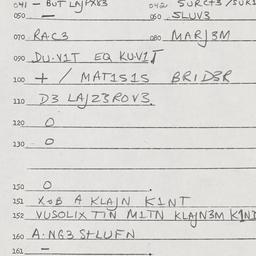 041 – BUT LAJPX83
050 — 060 SLUV3
070 RAC3 080 MARJ3M
090 DU·V1T EQ KU·V1T
100 + / MAT1S1S BR1D3R
110 D3 LAJZ3ROV3.
120 O
130 O
150 O
151 X∘B A KLAJN K1NT
152 VUSOLIX T1N M1TN KLAJN3M K1NT
160 A·NG3 S+LUFN
161 –